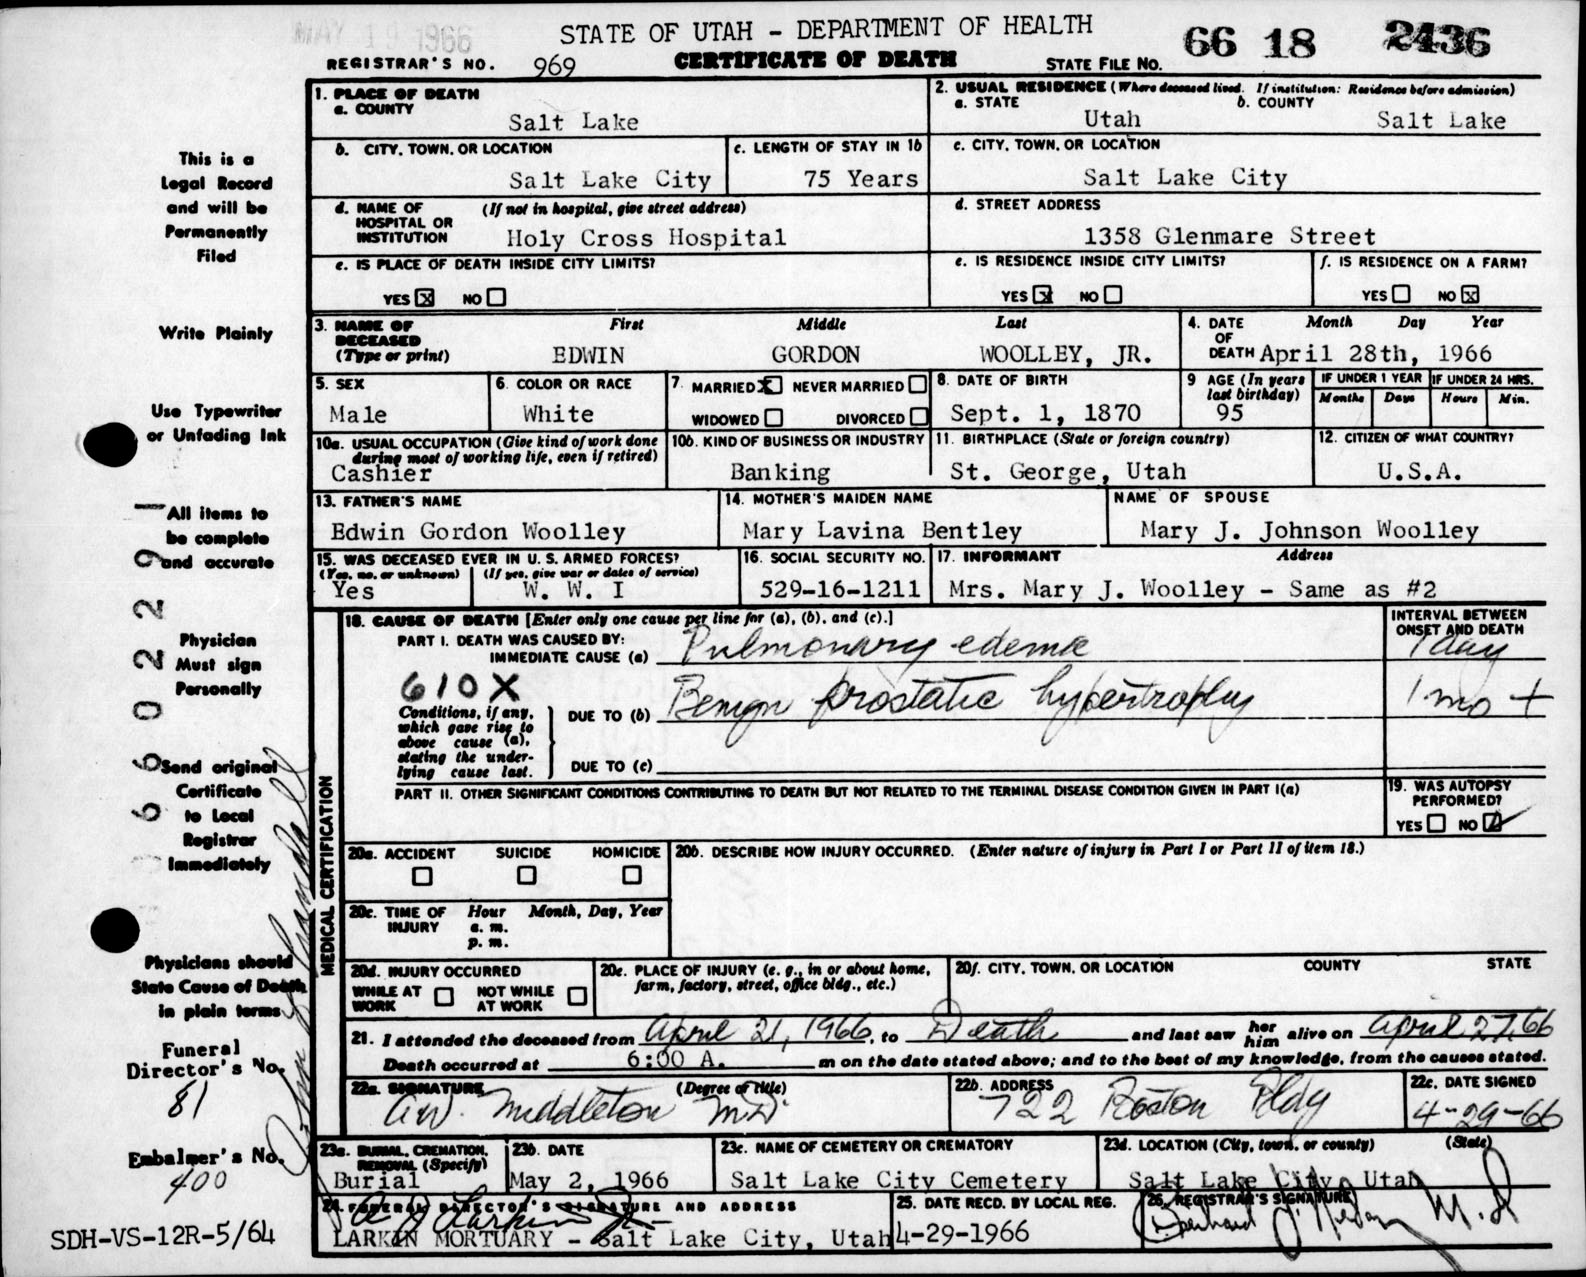 MAY 19 1966
STATE OF UTAH - DEPARTMENT OF HEALTH
66 18 2436
REGISTRAR'S NO. 969 CERTIFICATE OF DEATH STATE FILE NO.
1. PLACE OF DEATH
a. COUNTY
Salt Lake
2. USUAL RESIDENCE (Where deceased lived. If institution: Residence before admission)
a. STATE b. COUNTY
Utah Salt Lake
b. CITY, TOWN, OR LOCATION
Salt Lake City
c. LENGTH OF STAY IN 1b
75 Years
c. CITY, TOWN, OR LOCATION
Salt Lake City
d. NAME OF HOSPITAL OR INSTITUTION (If not in hospital, give street address)
Holy Cross Hospital
d. STREET ADDRESS
1358 Glenmare Street
e. IS PLACE OF DEATH INSIDE CITY LIMITS?
YES X NO
e. IS RESIDENCE INSIDE CITY LIMITS?
YES X NO
f. IS RESIDENCE ON A FARM?
YES NO X
3. NAME OF DECEASED (Type or print)
First Middle Last
EDWIN GORDON WOOLLEY, JR.
4. DATE OF DEATH Month Day Year
April 28th, 1966
5. SEX
Male
6. COLOR OR RACE
White
7. MARRIED X NEVER MARRIED
WIDOWED DIVORCED
8. DATE OF BIRTH
Sept. 1, 1870
9 AGE (In years last birthday)
95
IF UNDER 1 YEAR
Months Days
IF UNDER 24 HRS.
Hours Min.
10a. USUAL OCCUPATION (Give kind of work done during most of working life, even if retired)
Cashier
10b. KIND OF BUSINESS OR INDUSTRY
Banking
11. BIRTHPLACE (State or foreign country)
St. George, Utah
12. CITIZEN OF WHAT COUNTRY?
U.S.A.
13. FATHER'S NAME
Edwin Gordon Woolley
14. MOTHER'S MAIDEN NAME
Mary Lavina Bentley
NAME OF SPOUSE
Mary J. Johnson Woolley
15. WAS DECEASED EVER IN U. S. ARMED FORCES?
(Yes, no, or unknown) (If yes, give war or dates of service)
Yes W. W. I
16. SOCIAL SECURITY NO.
529-16-1211
17. INFORMANT Address
Mrs. Mary J. Woolley - Same as #2
MEDICAL CERTIFICATION
18. CAUSE OF DEATH [Enter only one cause per line for (a), (b), and (c).]
INTERVAL BETWEEN ONSET AND DEATH
PART I. DEATH WAS CAUSED BY:
IMMEDIATE CAUSE (a) Pulmonary edema 1 day
610X
Conditions, if any, which gave rise to above cause (a), stating the underlying cause last.
DUE TO (b) Benign prostatic hypertrophy 1 mo +
DUE TO (c)
PART II. OTHER SIGNIFICANT CONDITIONS CONTRIBUTING TO DEATH BUT NOT RELATED TO THE TERMINAL DISEASE CONDITION GIVEN IN PART I(a)
19. WAS AUTOPSY PERFORMED?
YES NO
20a. ACCIDENT SUICIDE HOMICIDE
20b. DESCRIBE HOW INJURY OCCURRED. (Enter nature of injury in Part I or Part II of item 18.)
20c. TIME OF INJURY Hour Month, Day, Year
a. m.
p. m.
20d. INJURY OCCURRED
WHILE AT WORK NOT WHILE AT WORK
20e. PLACE OF INJURY (e. g., in or about home, farm, factory, street, office bldg., etc.)
20f. CITY, TOWN, OR LOCATION COUNTY STATE
21. I attended the deceased from April 21, 1966, to Death and last saw her him alive on April 27, 66
Death occurred at 6:00 A. m on the date stated above; and to the best of my knowledge, from the causes stated.
22a. SIGNATURE (Degree or title)
AW. Middleton M.D.
22b. ADDRESS
722 Boston Bldg
22c. DATE SIGNED
4-29-66
23a. BURIAL, CREMATION, REMOVAL (Specify)
Burial
23b. DATE
May 2, 1966
23c. NAME OF CEMETERY OR CREMATORY
Salt Lake City Cemetery
23d. LOCATION (City, town, or county) (State)
Salt Lake City Utah
24. FUNERAL DIRECTOR'S SIGNATURE AND ADDRESS
LARKIN MORTUARY - Salt Lake City, Utah
25. DATE RECD. BY LOCAL REG.
4-29-1966
26. REGISTRAR'S SIGNATURE
M.D
This is a
Legal Record
and will be
Permanently
Filed
Write Plainly
Use Typewriter
or Unfading Ink
All items to
be complete
and accurate
Physician
Must sign
Personally
Send original
Certificate
to Local
Registrar
Immediately
Physicians should
State Cause of Death
in plain terms
Funeral
Director's No.
81
Embalmer's No.
400
SDH-VS-12R-5/64